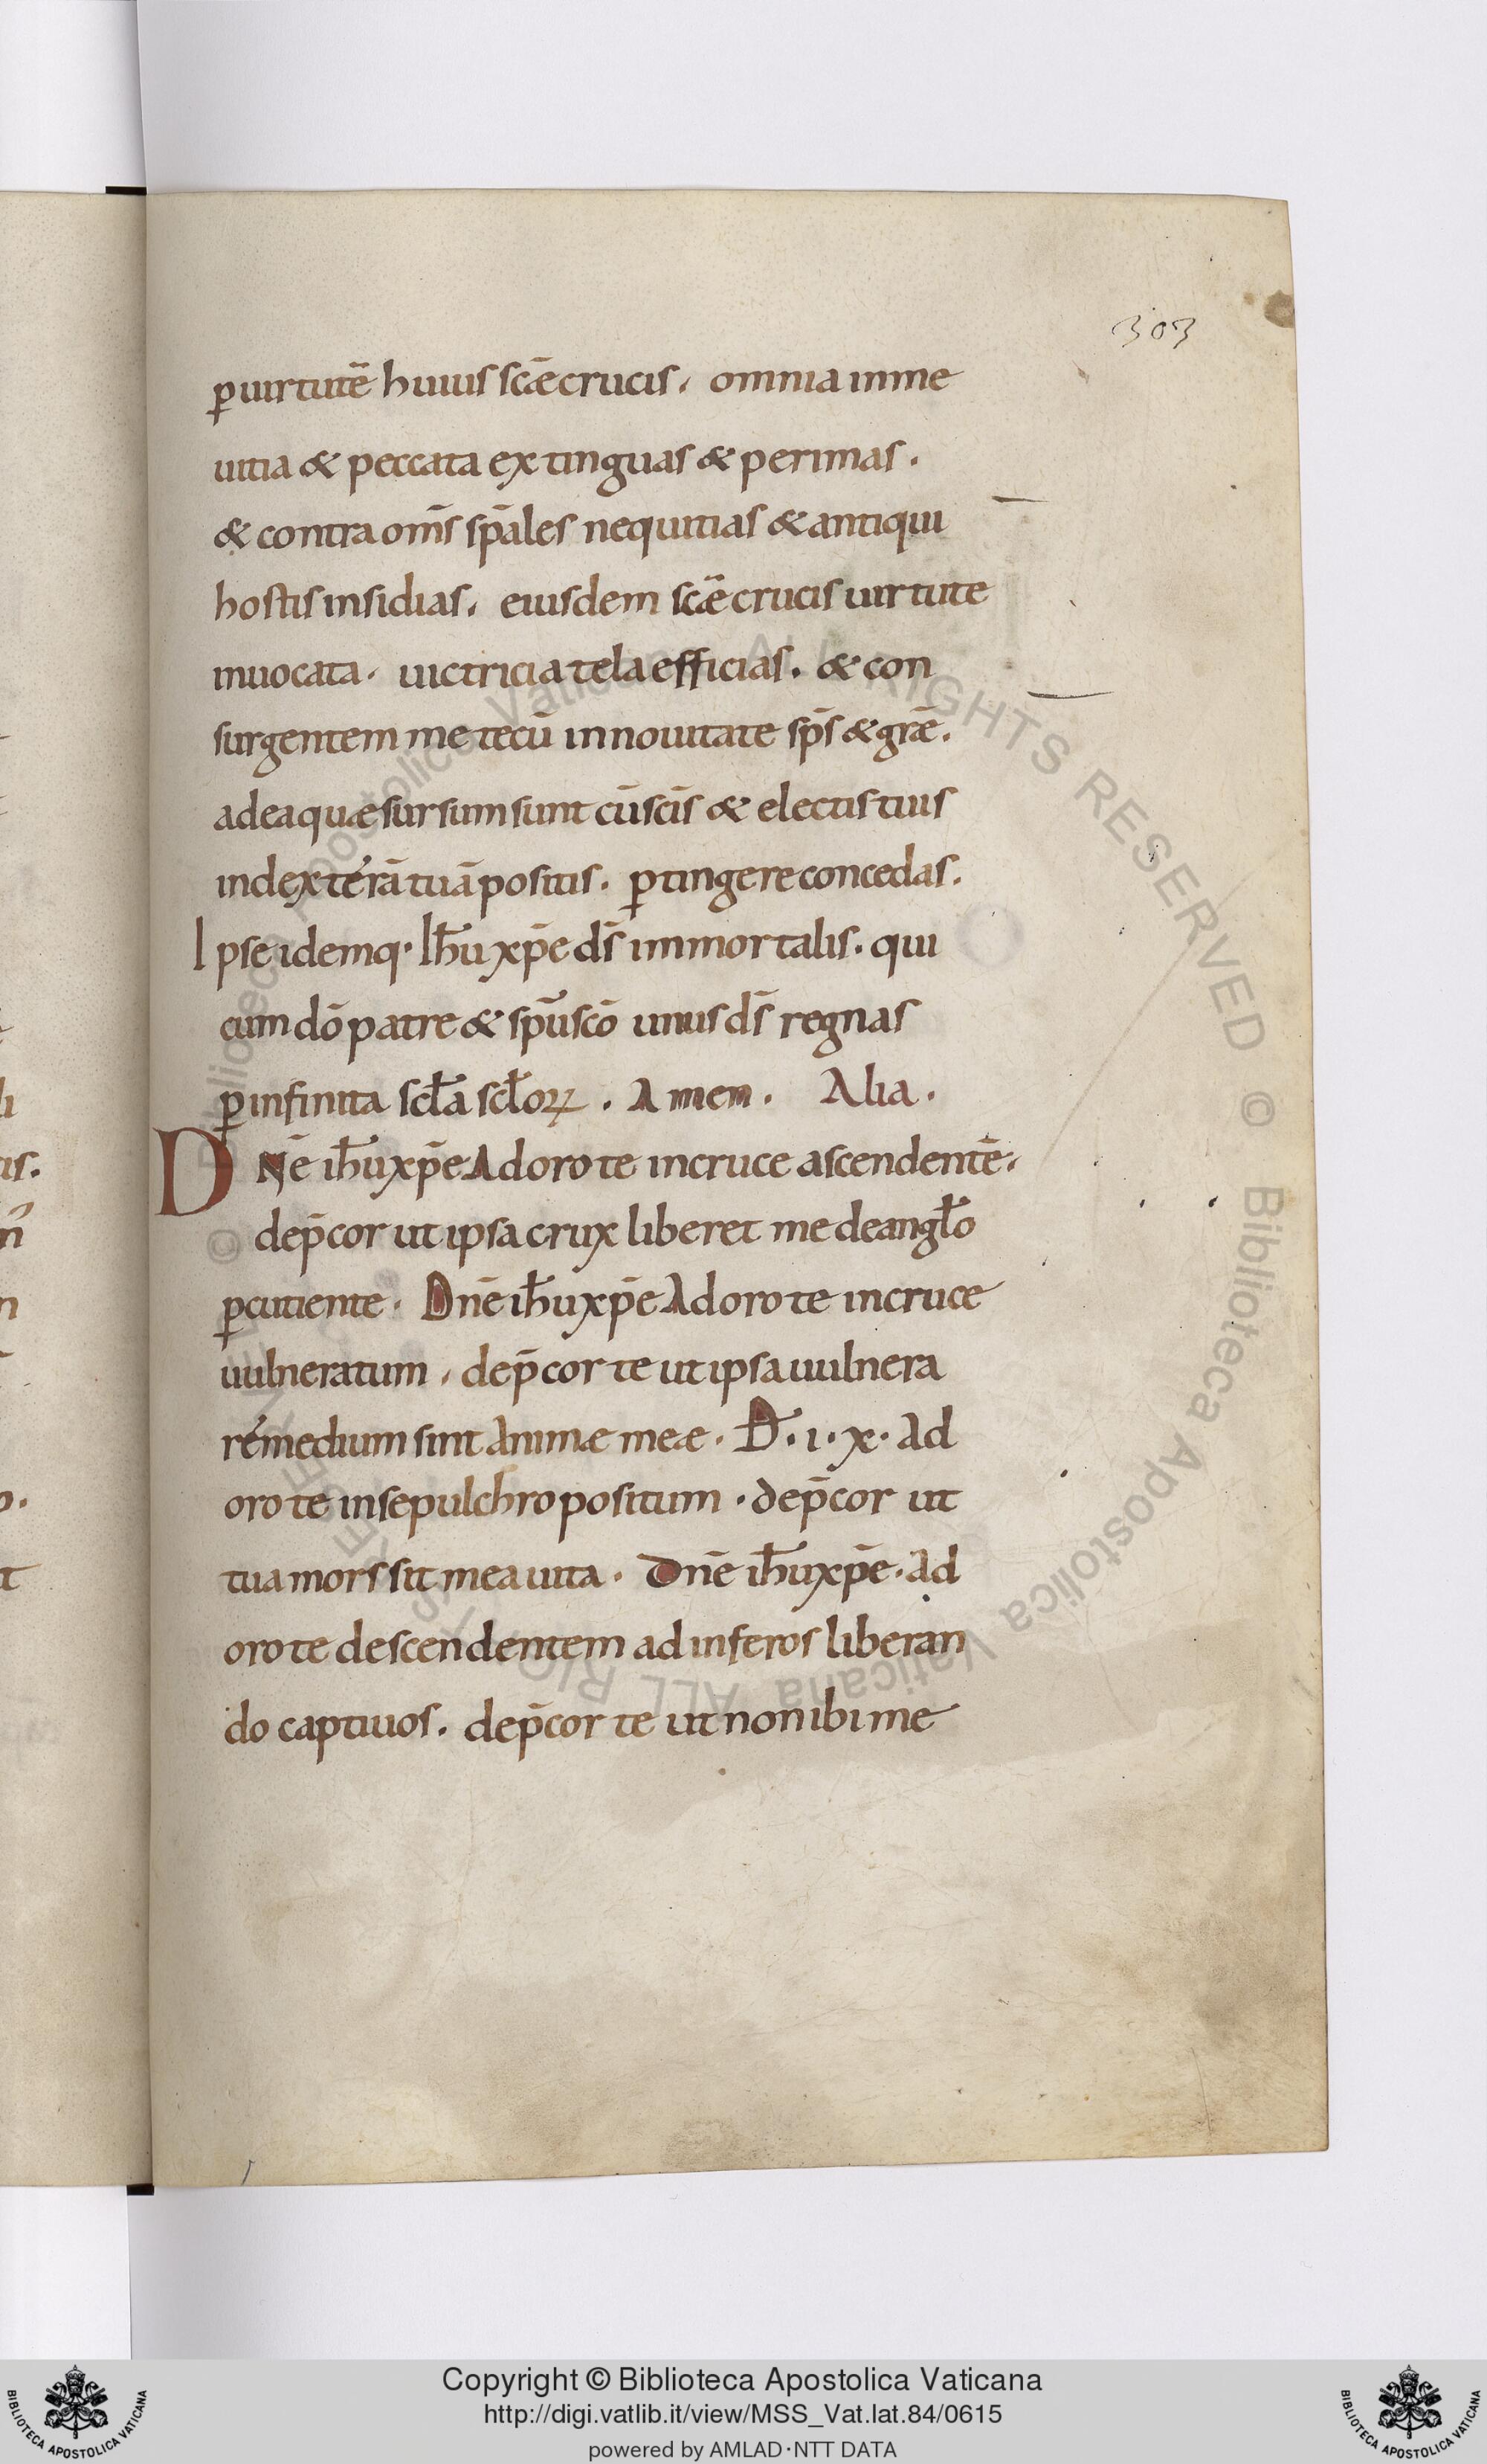 303
ꝑ uirtutē huius scǣ crucis, omnia in me
uitia & peccata extinguas & perimas.
& contra om̄s sp̄ales nequitias & antiqui
hostis insidias, eiusdem scǣ crucis uirtute
inuocata, uictricia tela efficias. & con
surgentem me tecū in nouitate sp̄s & grǣ.
ad ea quæ sursum sunt cū sc̄is & electis tuis
in dexterā tuā positis. ꝑtingere concedas.
Ipse idemq· ih̄u xp̄e ds̄ immortalis. qui
cum dō patre & sp̄u sc̄o unus ds̄ regnas
ꝑ infinita scl̄a scl̄oꝝ. Amen. Alia.
DN̄e ih̄u xp̄e Adoro te in cruce ascendentē,
dep̄cor ut ipsa crux liberet me de angl̄o
ꝑcutiente. Dn̄e ih̄u xp̄e Adoro te in cruce
uulneratum, dep̄cor te ut ipsa uulnera
remedium sint animæ meæ. D̄. i. x. Ad
oro te in sepulchro positum. dep̄cor ut
tua mors sit mea uita. Dn̄e ih̄u xp̄e. ad
oro te descendentem ad inferos liberan
do captiuos. dep̄cor te ut non ibi me
Copyright © Biblioteca Apostolica Vaticana
http://digi.vatlib.it/view/MSS_Vat.lat.84/0615
powered by AMLAD·NTT DATA
BIBLIOTECA APOSTOLICA VATICANA
BIBLIOTECA APOSTOLICA VATICANA
© Biblioteca Apostolica Vaticana ALL RIGHTS RESERVED © Biblioteca Apostolica Vaticana ALL RIGHTS RESERVED